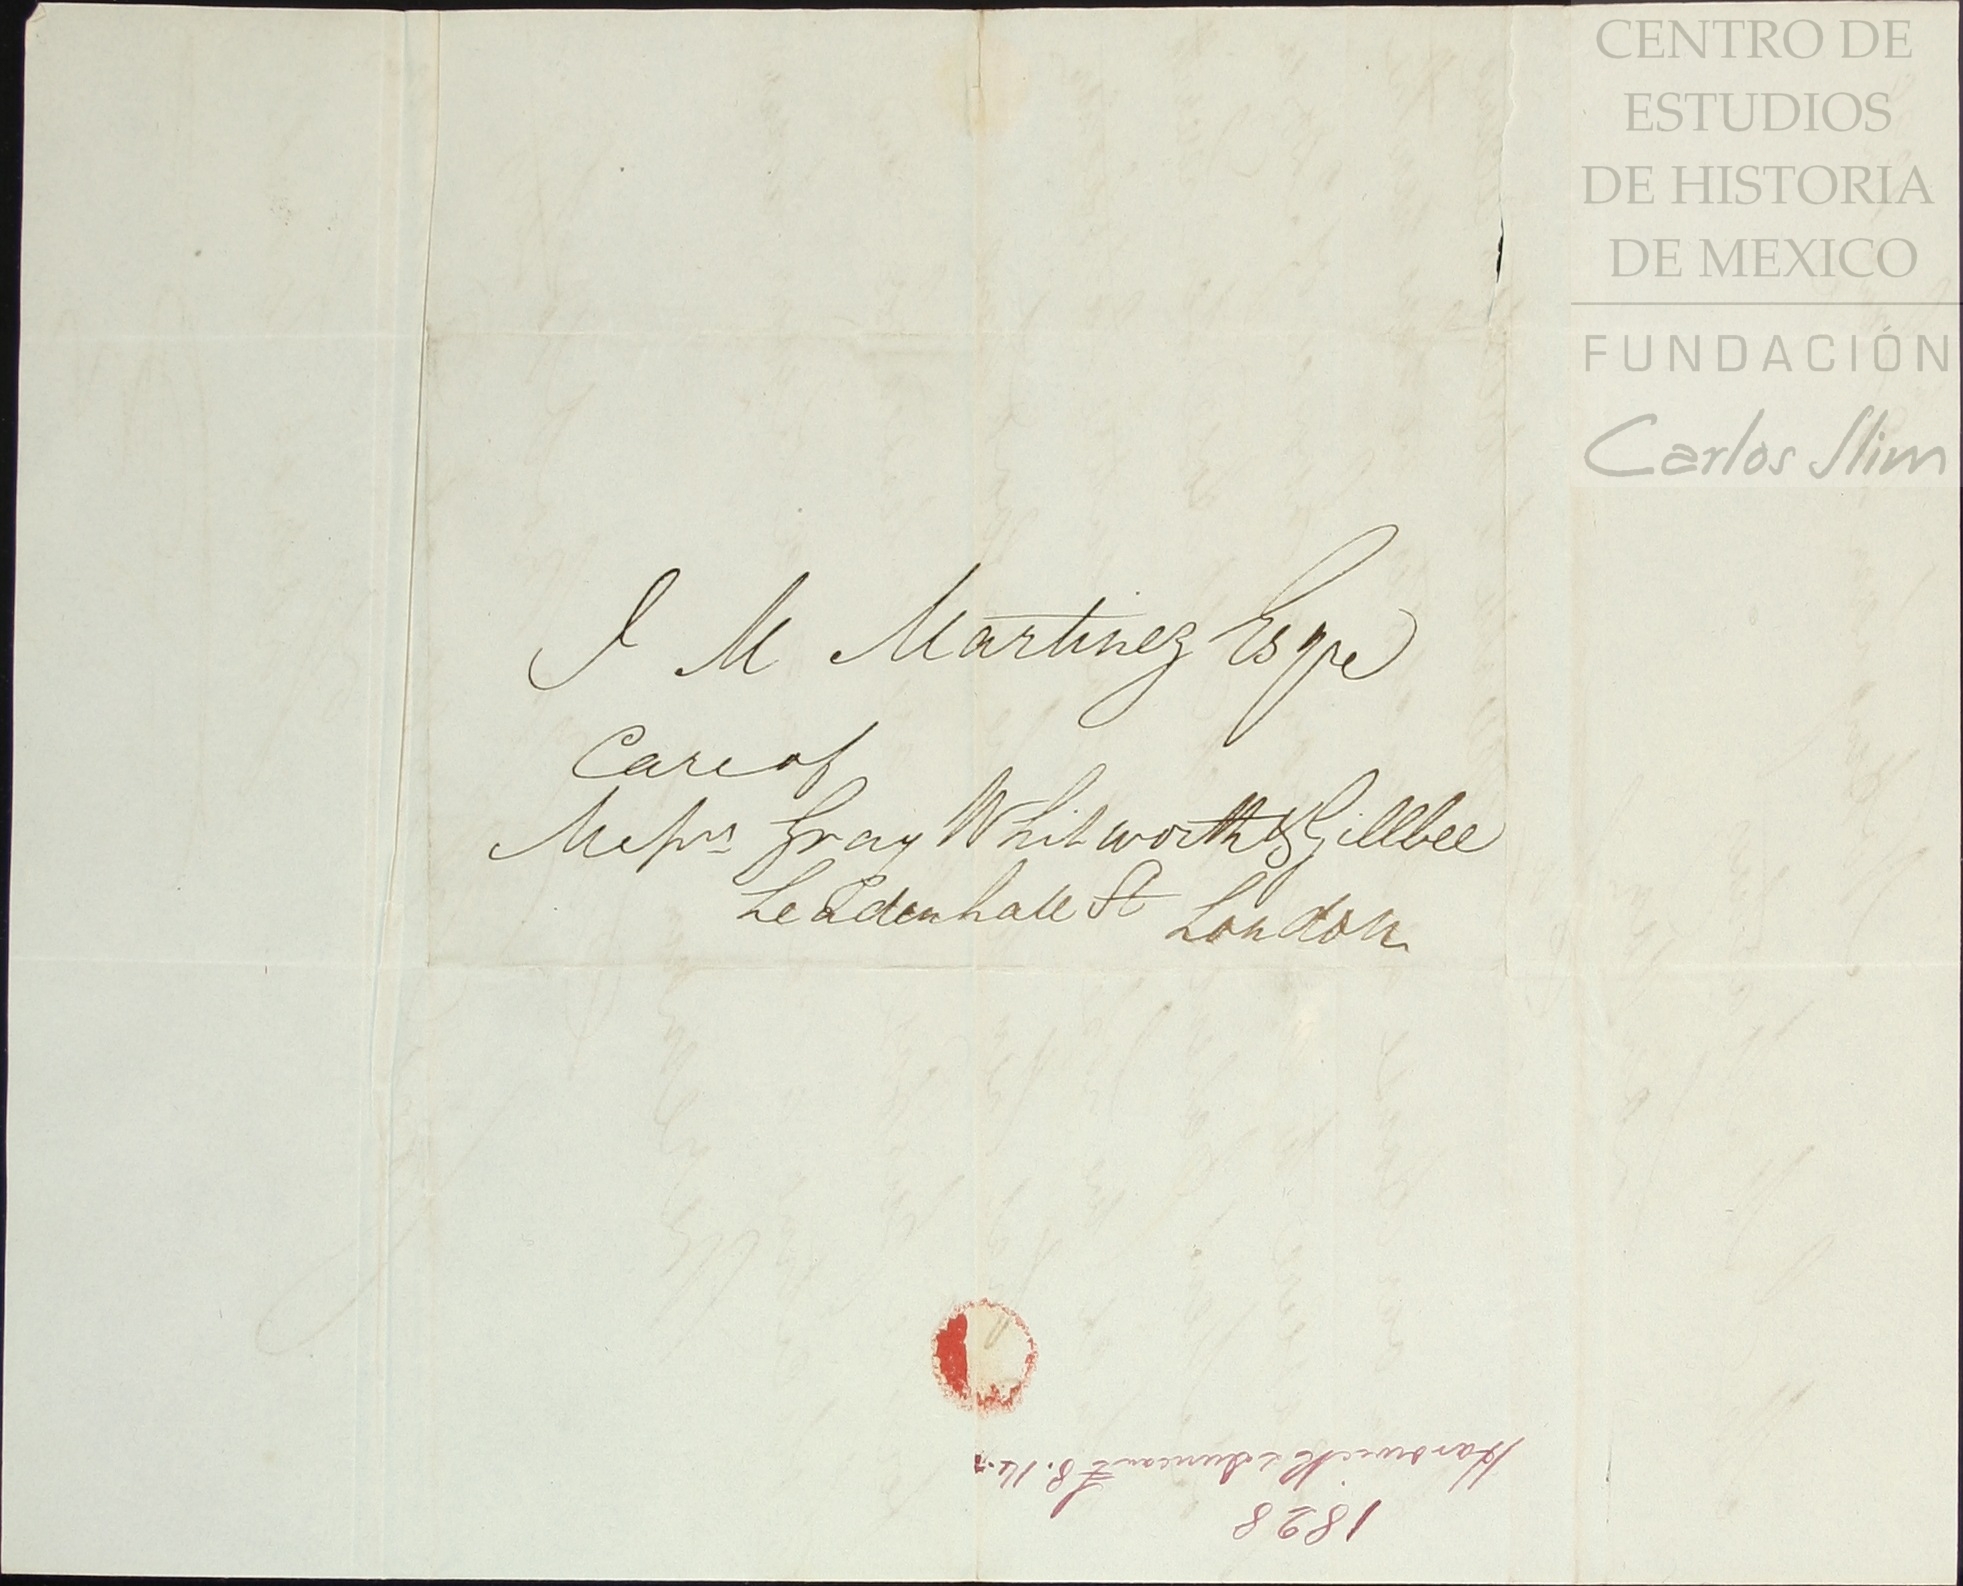 CENTRO DE
ESTUDIOS
DE HISTORIA
DE MEXICO
FUNDACIÓN
Carlos Slim
J M Martinez Esqre
Care of
Messrs Gray Whitworth & Gillbee
Leadenhall St London
1828
Hardwick & Duncan £8.14.